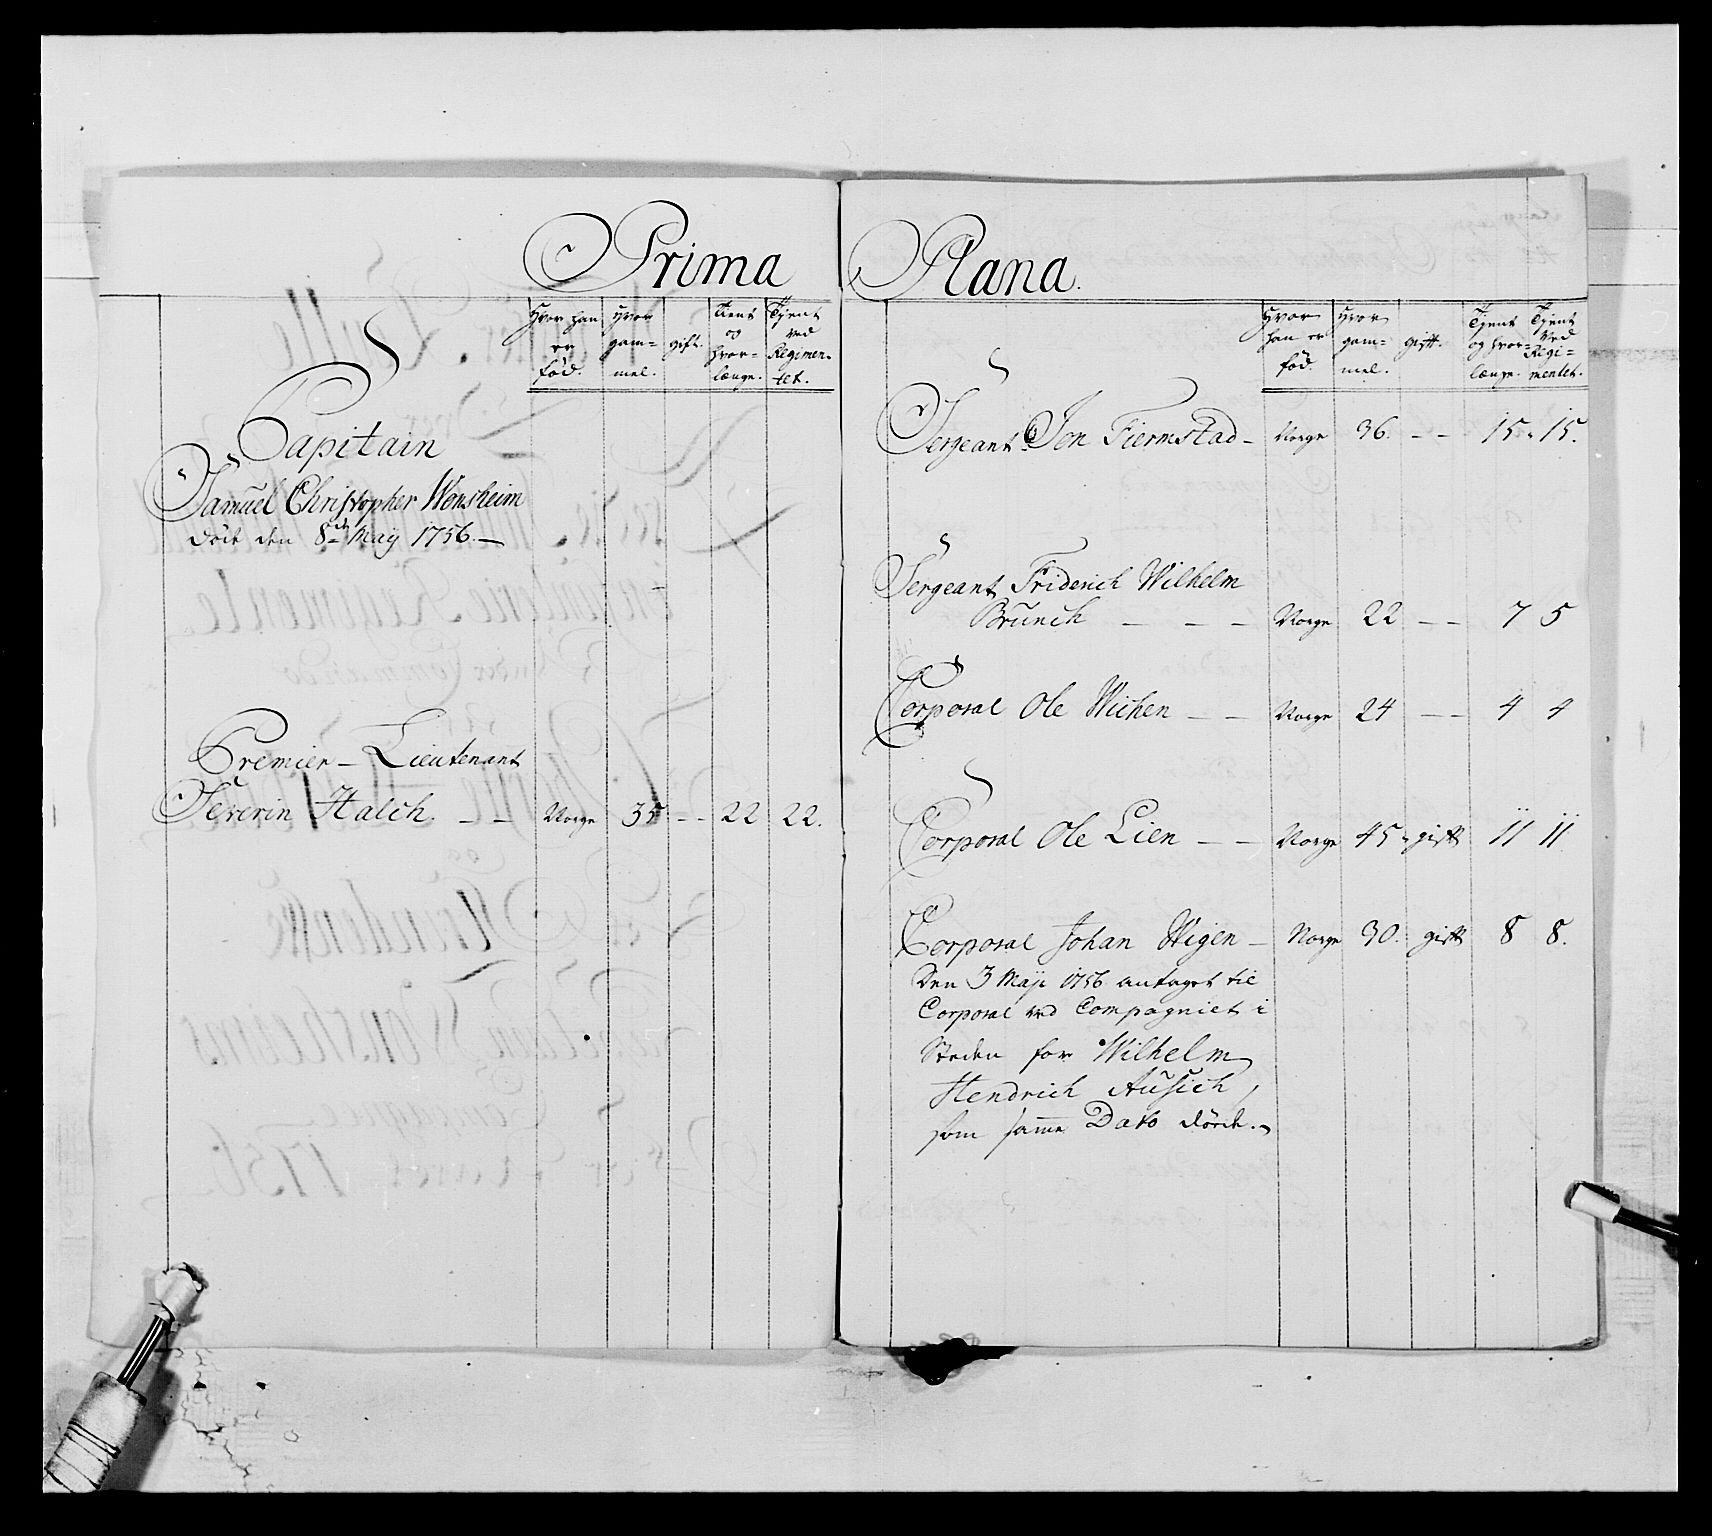 Prima
Hvor han er fød. Hvor gam= mel. gift. Tient og hvor= længe. Tjent ved Regimen= tet.
Capitain
Samuel Christopher Wonsheim
död den 8de May 1756.
Premier-Lieutenant
Severin Halch. - - Norge 35 - - 22 22.
Plana.
Hvor han er fød. Hvor gam= mel. gift. Tjent og hvor= længe. Tjent ved Regi= mentet.
Sergeant Jon Fiermstad - Norge 36. - - 15. 15.
Sergeant Friderich Wilhelm
Brunch - - - Norge 22 - - 7 5
Corporal Ole Wichen - - Norge 24 - - 4 4
Corporal Ole Lien - - Norge 45. gift 11 11
Corporal Johan Wigen - Norge 30. gift 8 8.
Den 3 Maji 1756 antaget til
Corporal ved Compagniet i
Steden for Wilhelm
Hendrich Ausich,
som samme Dato döde.